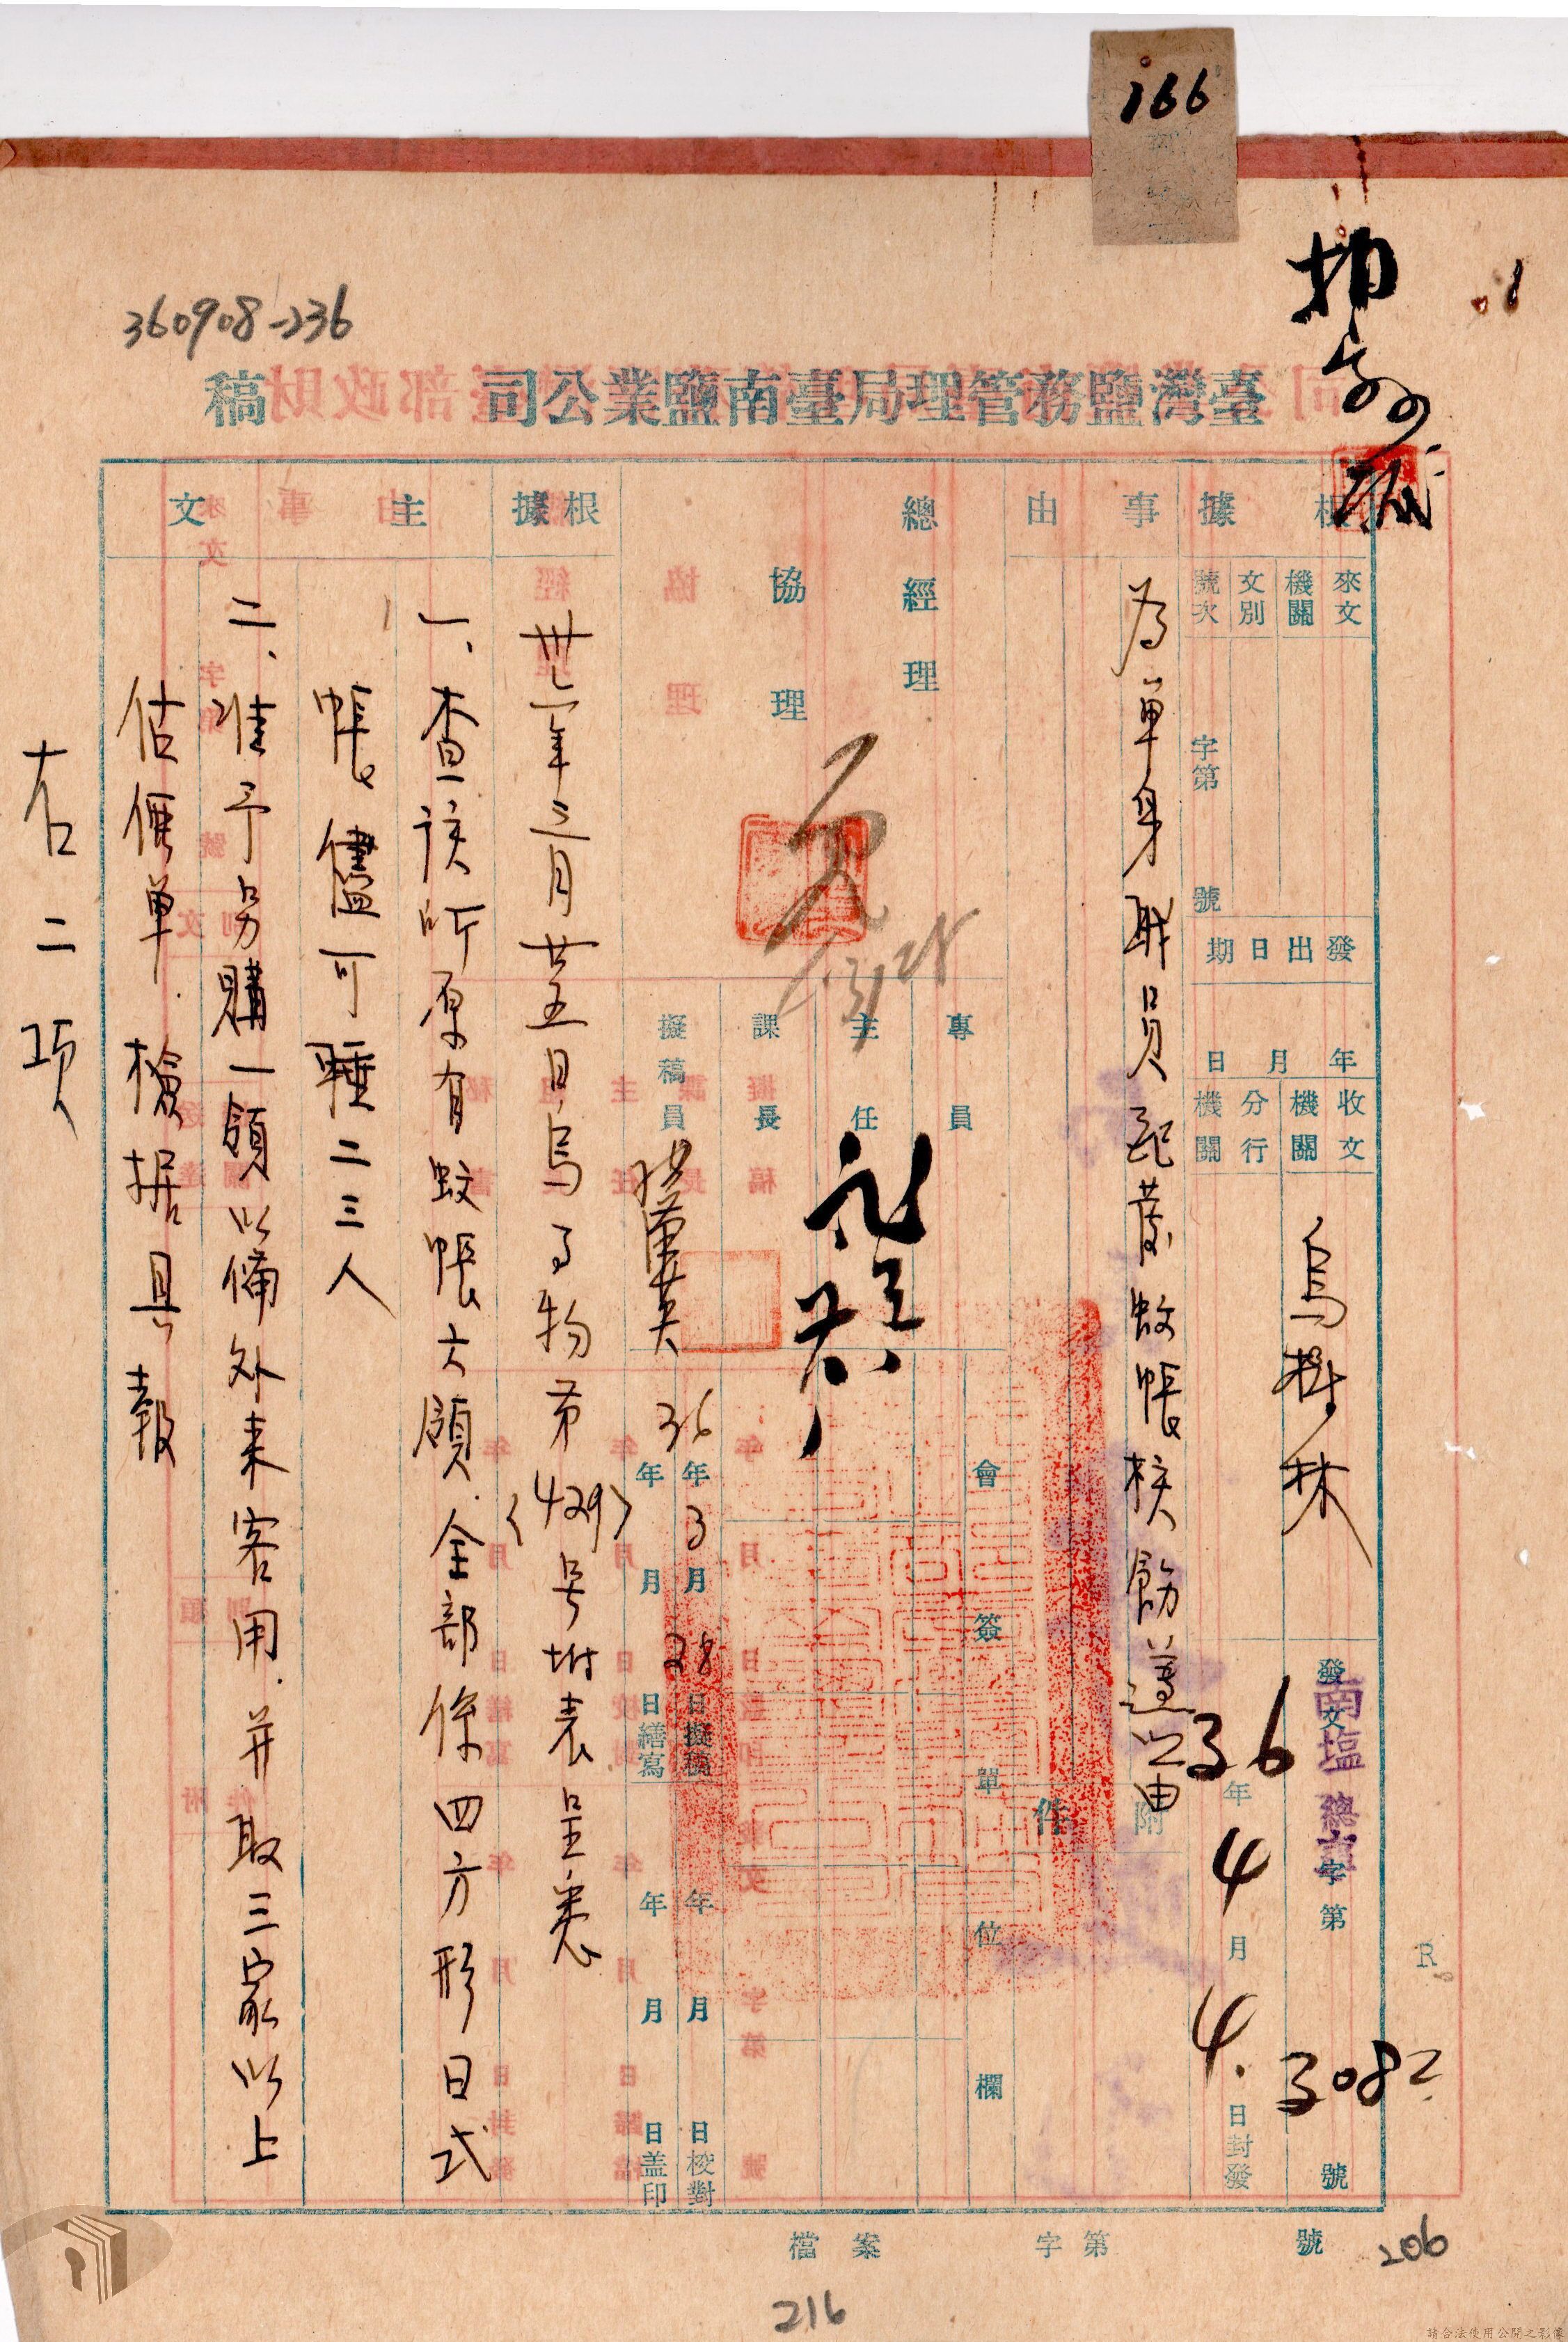 166
360908-236
臺灣鹽務管理局臺南鹽業公司 稿
根據
來文機關
文別
號次
字第 號
發出日期
年 月 日
收文機關
分行機關
烏樹林
發文 字第 3082 號
南塩總
36年4月4日封發
事由
為單身職員配發蚊帳核飭遵照由
附件
總經理
協理
3/28
專員
主任
課長
擬稿員
會簽單位欄
36年3月28日擬稿
年 月 日繕寫
年 月 日校對
年 月 日蓋印
根據
卅六年三月廿五日烏了物第(429)号坿表呈悉
主文
一、查該所原有蚊帳六領.全部係四方形日式
帳儘可睡二三人
二、准予另購一領以備外来客用.并取三家以上
估價單.檢据具報
右二項
檔案 字第 號
206
216
R
請合法使用公開之影像